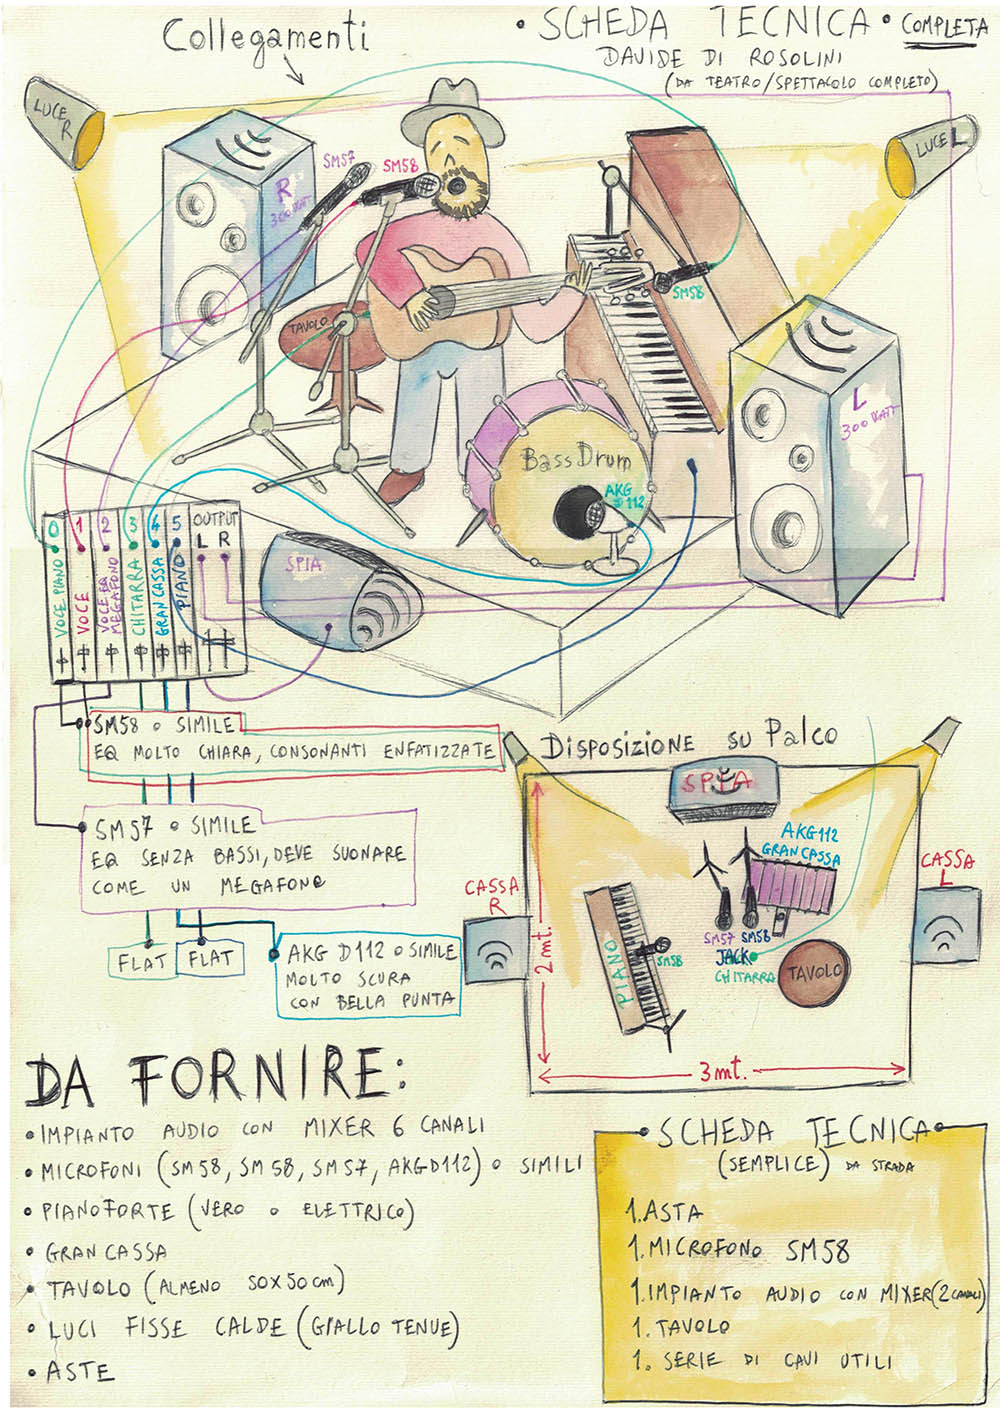 Collegamenti
• SCHEDA TECNICA • COMPLETA
DAVIDE DI ROSOLINI
(DA TEATRO/SPETTACOLO COMPLETO)
LUCE R
LUCE L
R
300 WATT
SM57
SM58
SM58
TAVOLO
L
300 WATT
Bass Drum
AKG
D112
SPIA
0 1 2 3 4 5 OUTPUT
L R
VOCE PIANO
VOCE
VOCE EQ
MEGAFONO
CHITARRA
GRAN CASSA
PIANO
SM58 o SIMILE
EQ MOLTO CHIARA, CONSONANTI ENFATIZZATE
SM57 o SIMILE
EQ SENZA BASSI, DEVE SUONARE
COME UN MEGAFONO
FLAT
FLAT
AKG D112 o SIMILE
MOLTO SCURA
CON BELLA PUNTA
DISPOSIZIONE SU PALCO
SPIA
AKG112
GRAN CASSA
CASSA
R
CASSA
L
SM57
SM58
JACK
CHITARRA
PIANO
SM58
TAVOLO
2 mt.
3 mt.
DA FORNIRE:
• IMPIANTO AUDIO CON MIXER 6 CANALI
• MICROFONI (SM58, SM58, SM57, AKGD112) o SIMILI
• PIANOFORTE (VERO o ELETTRICO)
• GRAN CASSA
• TAVOLO (ALMENO 50X50cm)
• LUCI FISSE CALDE (GIALLO TENUE)
• ASTE
SCHEDA TECNICA
(SEMPLICE) DA STRADA
1. ASTA
1. MICROFONO SM58
1. IMPIANTO AUDIO CON MIXER (2 CANALI)
1. TAVOLO
1. SERIE DI CAVI UTILI